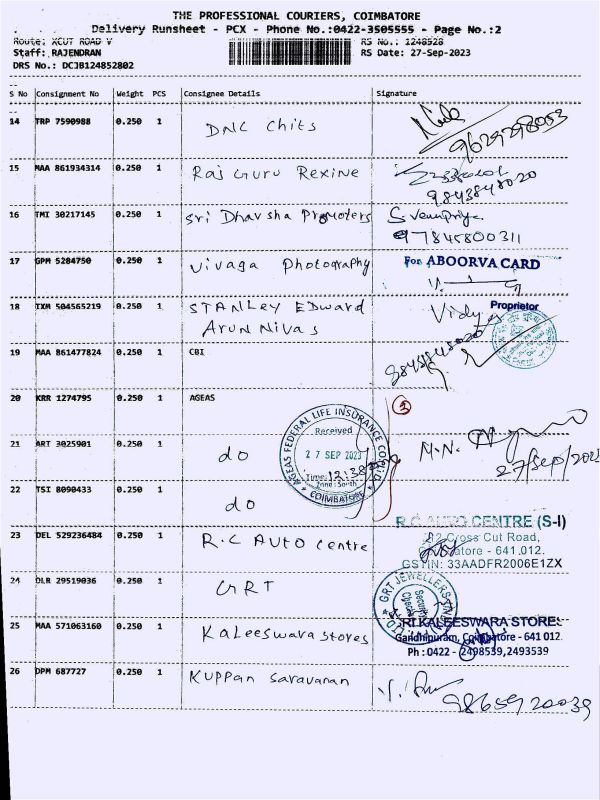 THE PROFESSIONAL COURIERS, COIMBATORE
Delivery Runsheet - PCX - Phone No.:0422-3505555 - Page No.:2
Route: XCUT ROAD V RS No.: 1248528
Staff: RAJENDRAN RS Date: 27-Sep-2023
DRS No.: DCJB124852802
S No Consignment No Weight PCS Consignee Details Signature
14 TRP 7590988 0.250 1 DNC Chits
9629298053
15 MAA 861934314 0.250 1 Raj Guru Rexine
9843848020
16 TMI 30217145 0.250 1 Sri Dhavsha Promoters S Venupriya
97845800311
17 GPM 5284750 0.250 1 Vivaga Photography For ABOORVA CARD
Proprietor
18 TXM 504565219 0.250 1 STANLEY EDward Vidya
Arun Nivas
19 MAA 861477824 0.250 1 CBI
9843848020
20 KRR 1274795 0.250 1 AGEAS
3
AGEAS FEDERAL LIFE INSURANCE CO LTD
Received
27 SEP 2023
Time: 12:38
Zone: South
COIMBATORE
21 ART 3025901 0.250 1 do M.N.
27/Sep/2023
22 TSI 8090433 0.250 1 do
23 DEL 529236484 0.250 1 R.C AUTO Centre R.C AUTO CENTRE (S-I)
82 Cross Cut Road,
Coimbatore - 641 012.
GSTIN: 33AADFR2006E1ZX
24 DLR 29519036 0.250 1 GRT
GRT JEWELLERS
Security
Checked
25 MAA 571063160 0.250 1 Kaleeswara Stores SRI KALEESWARA STORES
Gandhipuram, Coimbatore - 641 012.
Ph : 0422 - 2498539, 2493539
26 DPM 687727 0.250 1 Kuppan Saravanan
9865920039